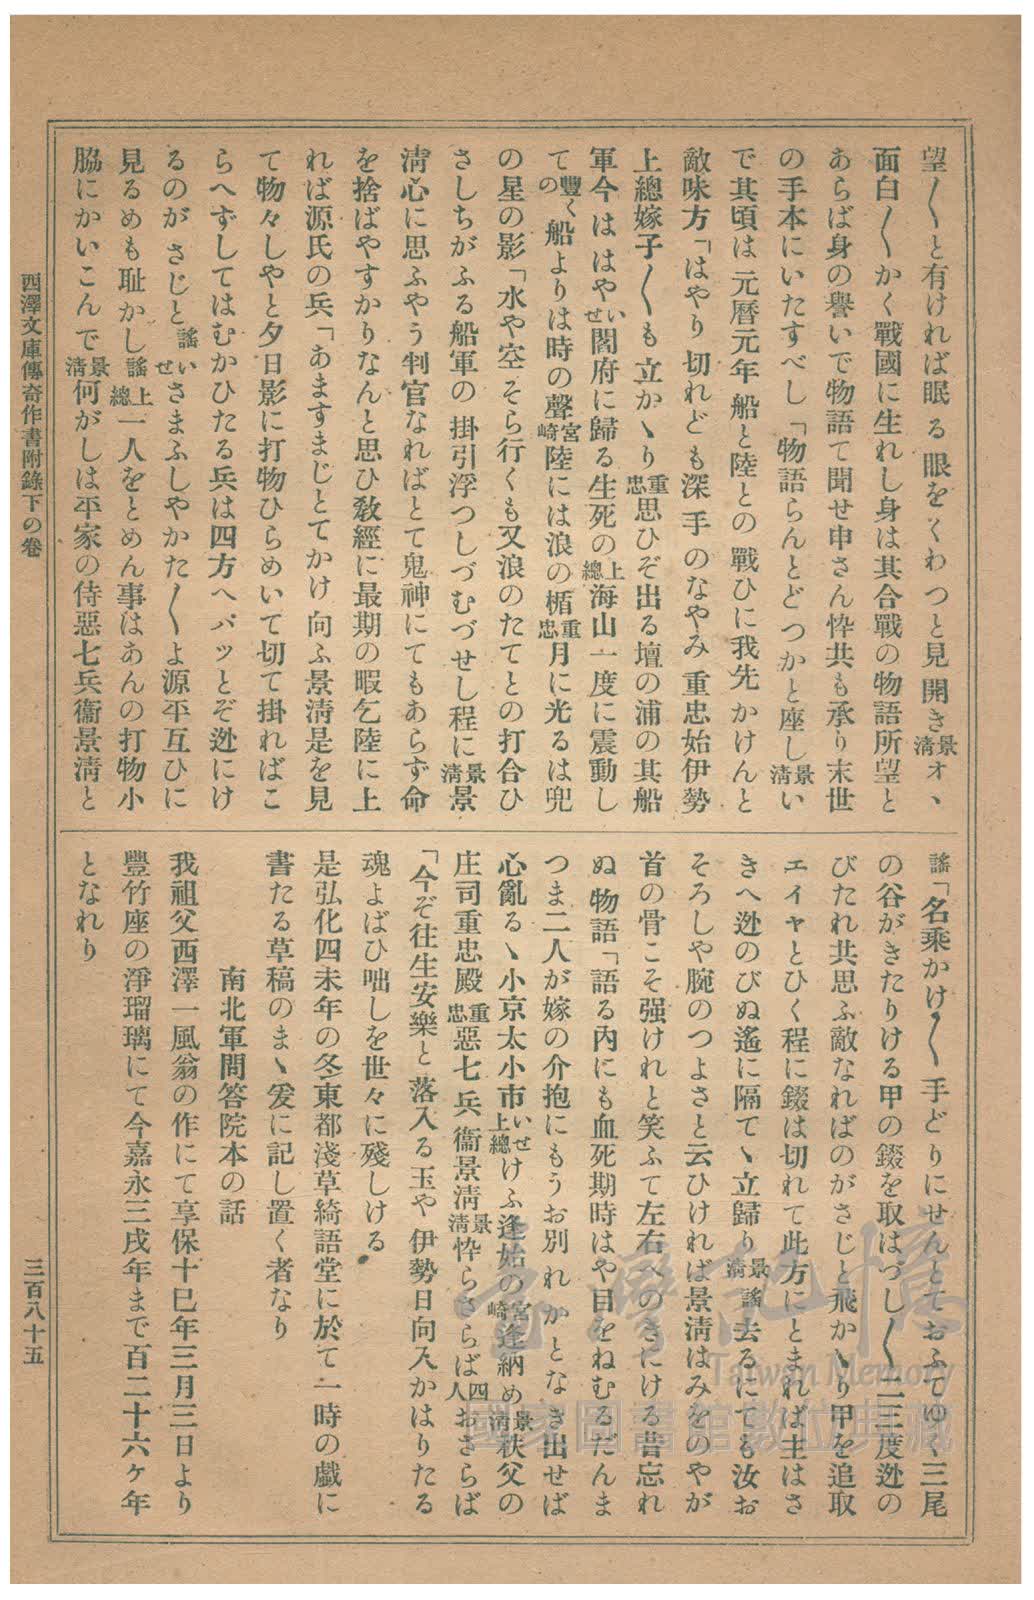 望〳〵と有ければ眠る眼をくわつと見開き景清オヽ
面白〳〵かく戰國に生れし身は其合戰の物語所望と
あらば身の譽いで物語て聞せ申さん忰共も承り末世
の手本にいたすべし「物語らんとどつかと座し景清い
で其頃は元曆元年船と陸との戰ひに我先かけんと
敵味方「はやり切れども深手のなやみ重忠始伊勢
上總嫁子〳〵も立かヽり重忠思ひぞ出る壇の浦の其船
軍今ははやいせ閻府に歸る生死の上總海山一度に震動し
て豐くの船よりは時の聲宮崎陸には浪の楯重忠月に光るは兜
の星の影「水や空そら行くも又浪のたてとの打合ひ
さしちがふる船軍の掛引浮つしづむづせし程に景清景
清心に思ふやう判官なればとて鬼神にてもあらず命
を捨ばやすかりなんと思ひ敎經に最期の暇乞陸に上
れば源氏の兵「あますまじとてかけ向ふ景清是を見
て物々しやと夕日影に打物ひらめいて切て掛ればこ
らへずしてはむかひたる兵は四方へパッとぞ迯にけ
るのがさじと謠いせさまふしやかた〳〵よ源平互ひに
見るめも耻かし謠上總一人をとめん事はあんの打物小
脇にかいこんで景清何がしは平家の侍惡七兵衞景淸と
謠「名乘かけ〳〵手どりにせんとておふてゆく三尾
の谷がきたりける甲の錣を取はづし〳〵二三度迯の
びたれ共思ふ敵なればのがさじと飛かヽり甲を追取
エイヤとひく程に錣は切れて此方にとまれば主はさ
きへ迯のびぬ遙に隔てヽ立歸り景清謠去るにても汝お
そろしや腕のつよさと云ひければ景清はみをのやが
首の骨こそ强けれと笑ふて左右へのきにける昔忘れ
ぬ物語「語る內にも血死期時はや目をねむるだんま
つま二人が嫁の介抱にもうお別れかとなき出せば
心亂るヽ小京太小市いせ上總けふ逢始の宮崎逢納め景清秩父の
庄司重忠殿重忠惡七兵衞景淸景清忰らさらば四人おさらば
「今ぞ往生安樂と落入る玉や伊勢日向入かはりたる
魂よばひ咄しを世々に殘しける
是弘化四未年の冬東都淺草綺語堂に於て一時の戱に
書たる草稿のまヽ爰に記し置く者なり
南北軍問答院本の話
我祖父西澤一風翁の作にて享保十巳年三月三日より
豐竹座の淨瑠璃にて今嘉永三戌年まで百二十六ケ年
となれり
西澤文庫傳奇作書附錄下の卷
三百八十五
臺灣記憶
Taiwan Memory
國家圖書館數位典藏